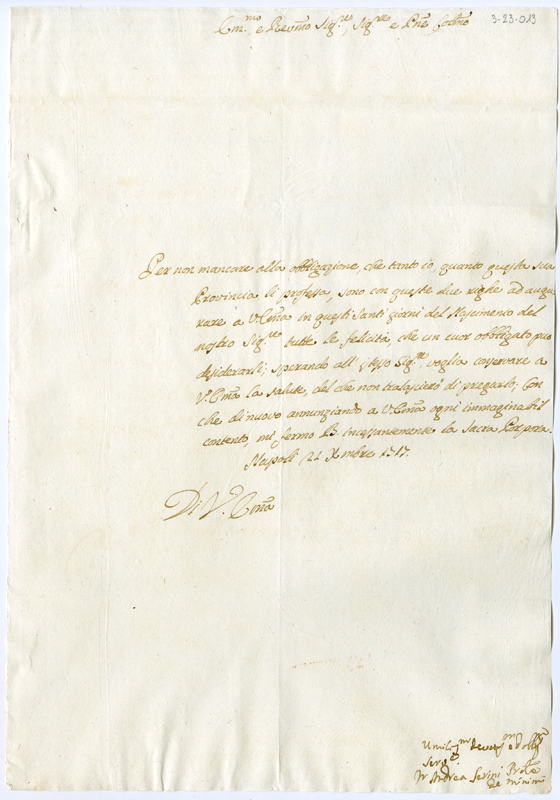 Em.mo e Reverendmo Sig.re, Sig.re e Pne Colmo
3-23-013
Per non mancare alla obbligazione, che tanto io, quanto questa sua
Provincia li professa, sono con queste due righe ad augu
rare à V. Emã in questi Santi giorni del Nascimento del
nostro Sig.re tutte le felicità, che un cuor obbligato può
desiderarli; sperando all' istesso Sig.re, voglia conservare a
V.ª Emã la salute, del che non tralascierò di pregarlo; Con
che di nuovo annunziando a V. Emã ogni immaginabil
contento, mi fermo B. incessantemente la Sacra Porpora.
Napoli 21 Xmbre 1717.
Di V.ª Emã
Umiliss.mo devot.mo ed obb.mo
Ser.e
Fr Andrea Serini Prõle
de Minimi